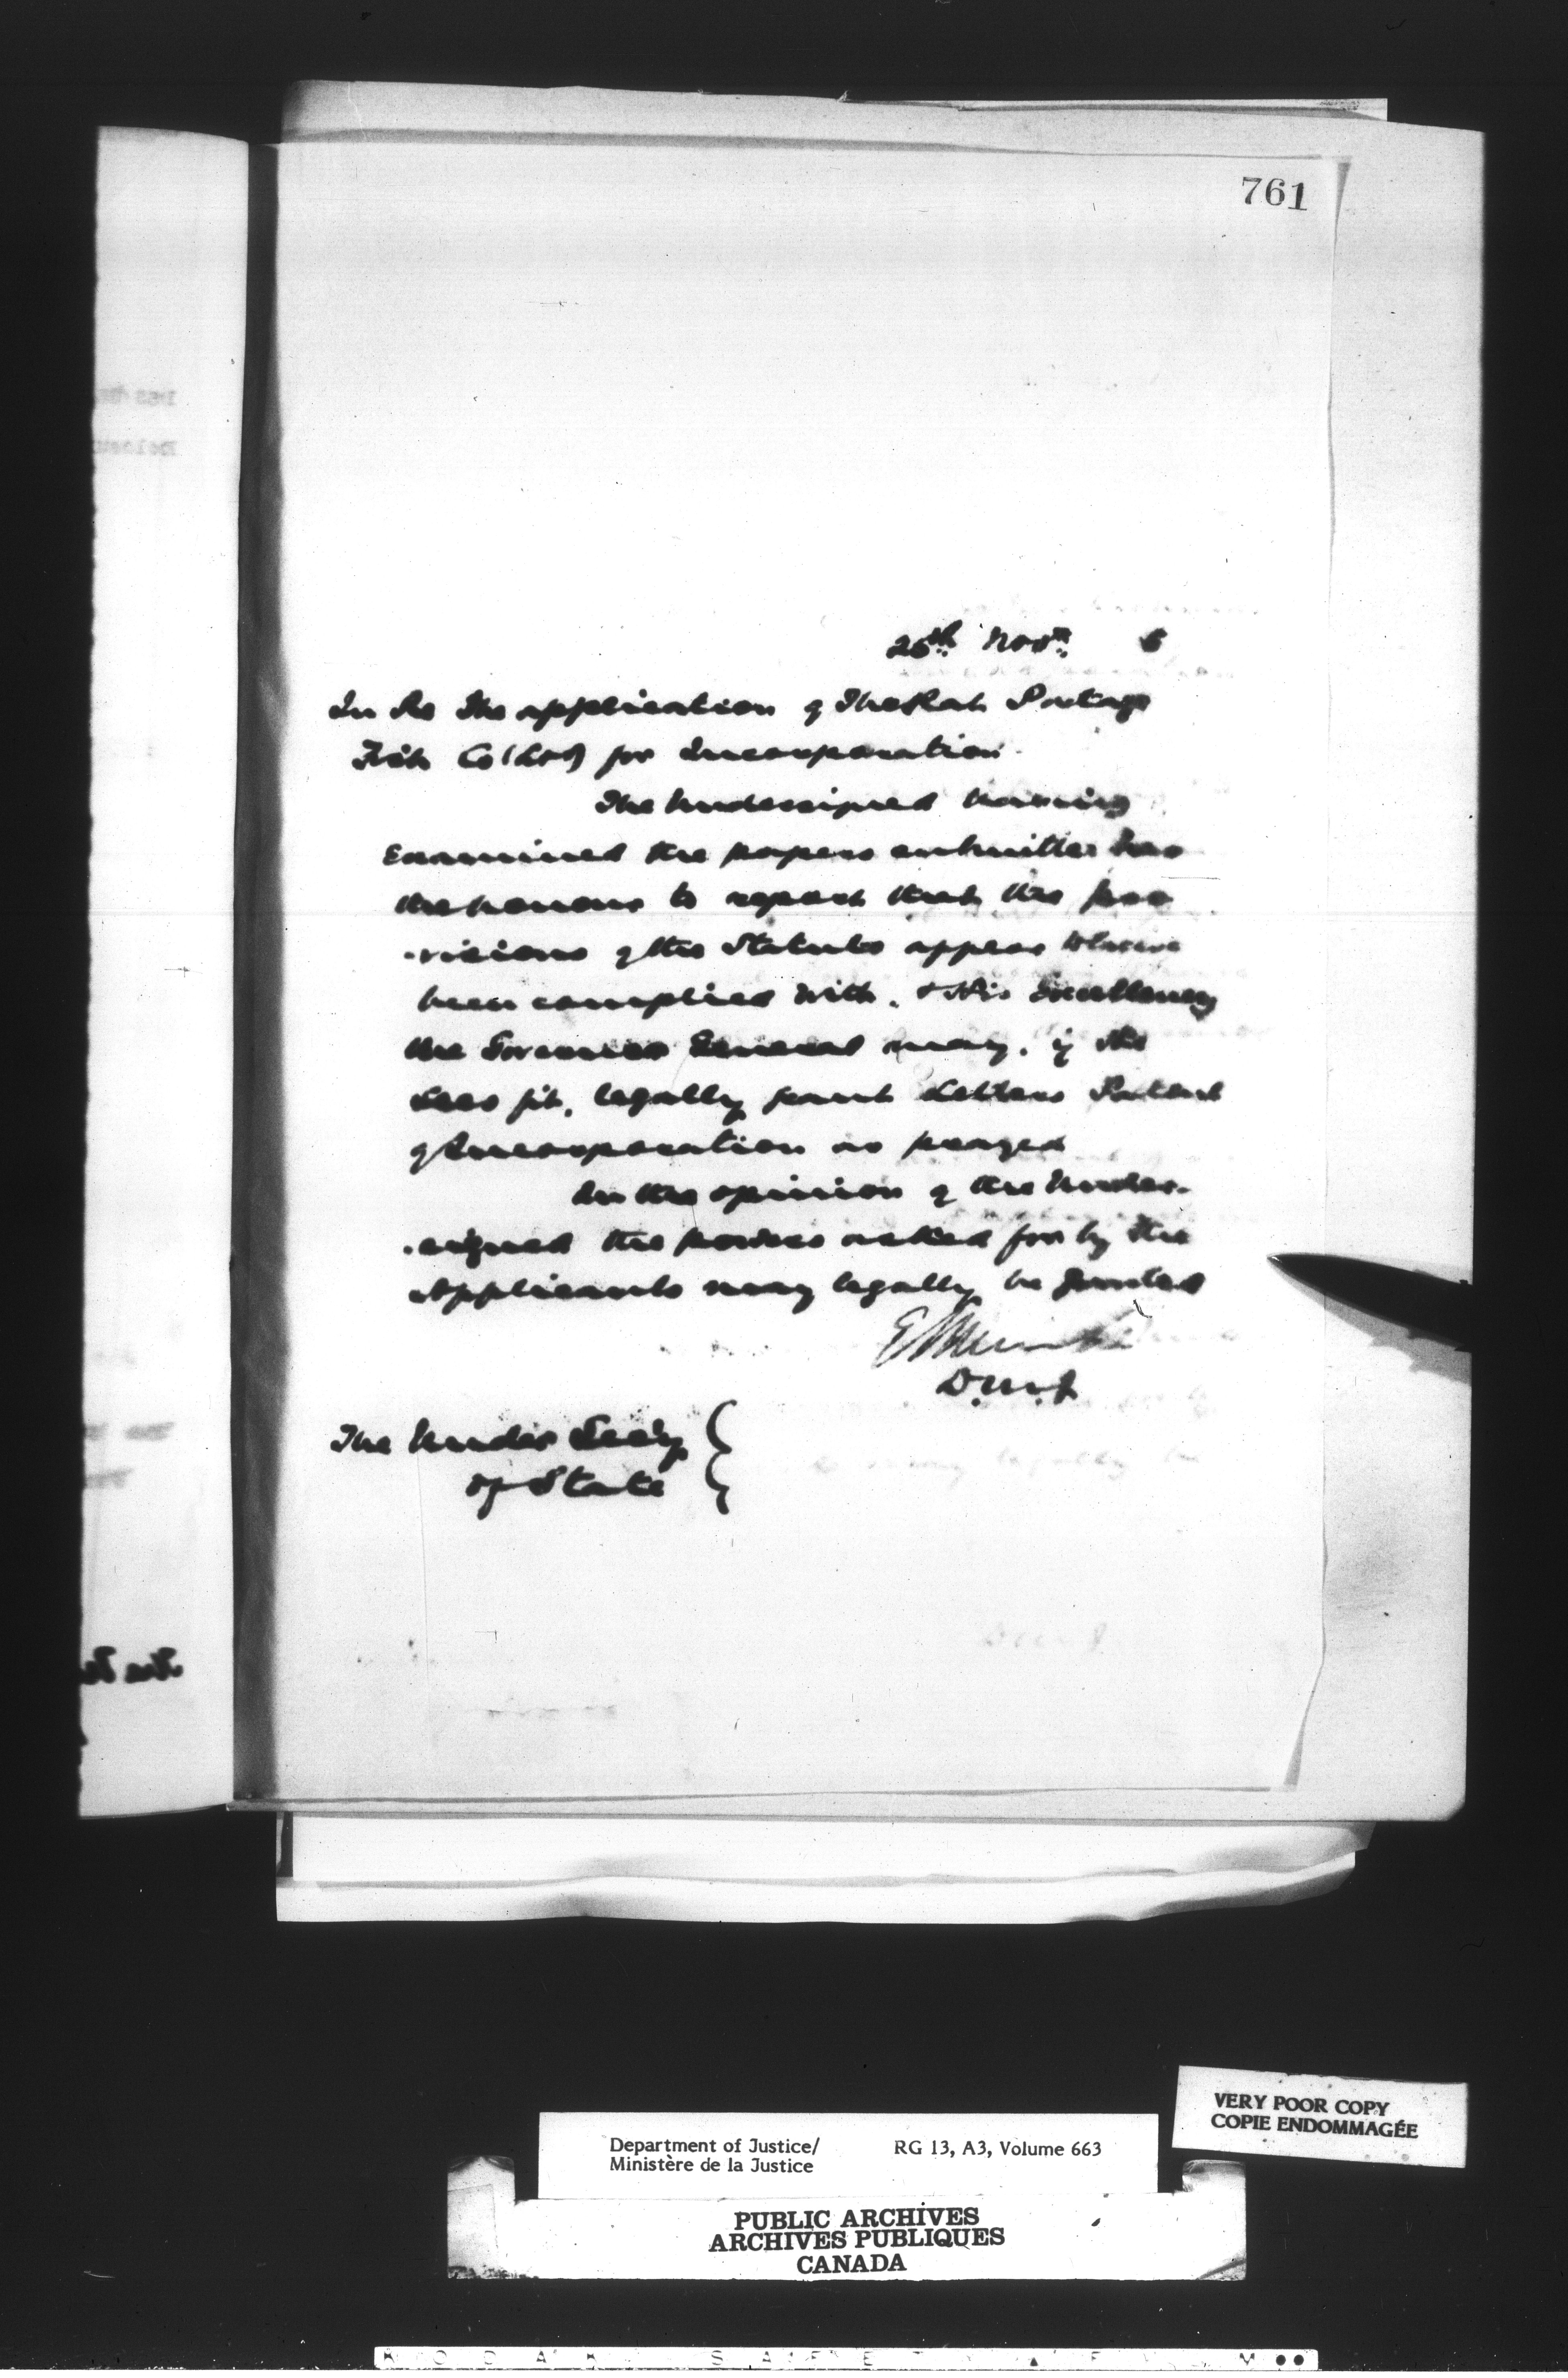 761
25th Novr 6
In Re The application of The Rat Portage
Fish Co (Ltd) for Incorporation.
The Undersigned having
Examined the papers submitted has
the honour to report that the pro
-visions of the Statutes appear to have
been complied with, & His Excellency
the Governor General may, if He
sees fit, legally grant Letters Patent
of Incorporation as prayed
In the opinion of the Under-
-signed the powers asked for by the
Applicants may legally be granted
D.M.J.
The Under Secy
of State
VERY POOR COPY
COPIE ENDOMMAGÉE
Department of Justice/ RG 13, A3, Volume 663
Ministère de la Justice
PUBLIC ARCHIVES
ARCHIVES PUBLIQUES
CANADA